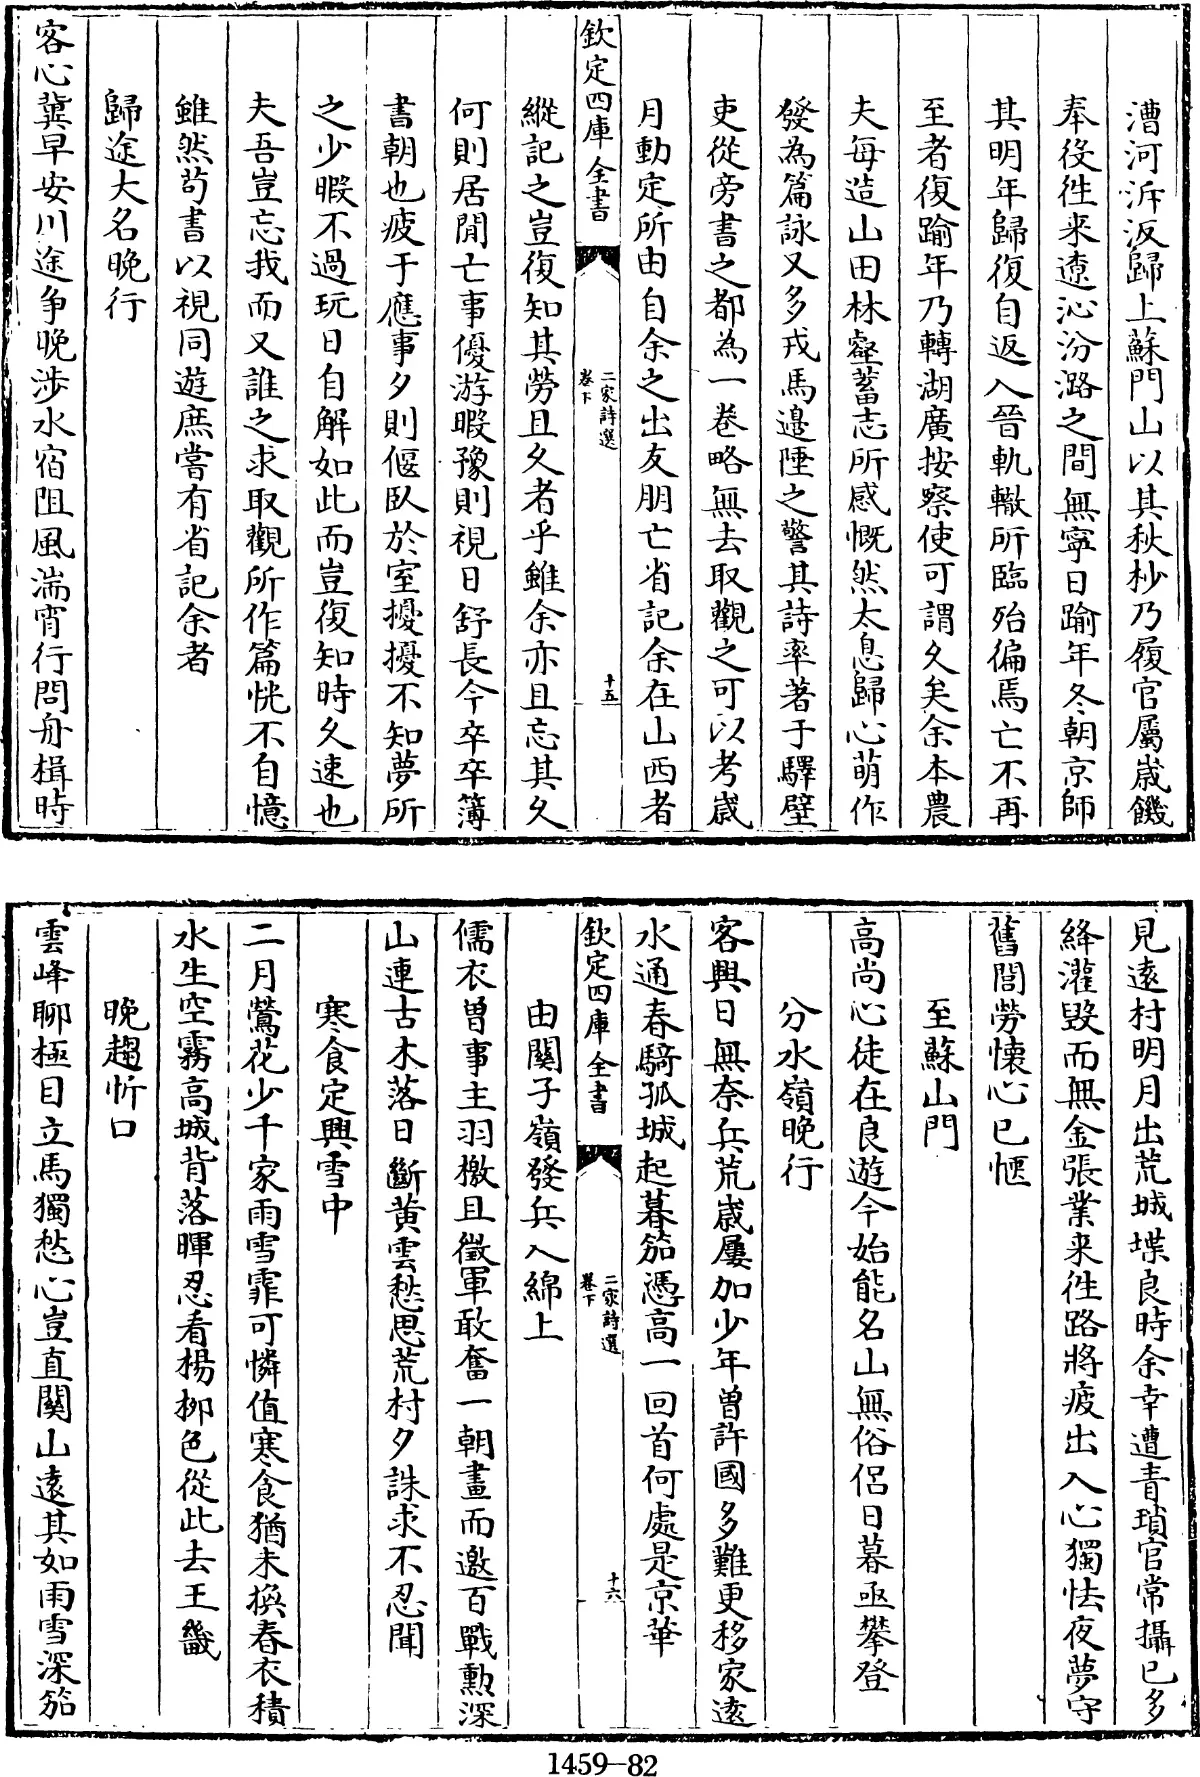 漕河泝汳歸上蘇門山以其秋杪乃履官屬歲饑
奉役徃来遼沁汾潞之間無寧日踰年冬朝京師
其明年歸復自返入晉軌轍所臨殆徧焉亡不再
至者復踰年乃轉湖廣按察使可謂久矣余本農
夫每造山田林壑蓄志所感慨然太息歸心萌作
發為篇詠又多戎馬邊陲之警其詩率著于驛壁
吏從旁書之都為一巻略無去取觀之可以考歲
月動定所由自余之出友朋亡省記余在山西者
欽定四庫全書
二家詩選
卷下
十五
縱記之豈復知其勞且久者乎雖余亦且忘其久
何則居閒亡事優游暇豫則視日舒長今卒卒簿
書朝也疲于應事夕則偃臥於室擾擾不知夢所
之少暇不過玩日自解如此而豈復知時久速也
夫吾豈忘我而又誰之求取觀所作篇恍不自憶
雖然茍書以視同遊庶嘗有省記余者
歸途大名晚行
客心冀早安川途争晚涉水宿阻風湍宵行問舟楫時
見逺村明月出荒城堞良時余幸遭青瑣官常攝已多
絳灌毁而無金張業来徃路將疲出入心獨怯夜夢守
舊閭勞懐心已愜
至蘇山門
高尚心徒在良遊今始能名山無俗侣日暮亟攀登
分水嶺晚行
客興日無奈兵荒歲屢加少年曽許國多難更移家逺
水通春騎孤城起暮笳憑高一回首何處是京華
欽定四庫全書
二家詩選
卷下
十六
由關子嶺發兵入綿上
儒衣曽事主羽檄且徵軍敢奮一朝畫而邀百戰勲深
山連古木落日斷黄雲愁思荒村夕誅求不忍聞
寒食定興雪中
二月鶯花少千家雨雪霏可憐值寒食猶未換春衣積
水生空霧高城背落暉忍看楊柳色從此去王畿
晚趨忻口
雲峰聊極目立馬獨愁心豈直關山逺其如雨雪深笳
1459—82